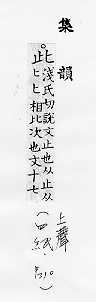 集韻
此淺氏切說文止也从止从
匕匕相比次也文十七
(上聲
四紙.